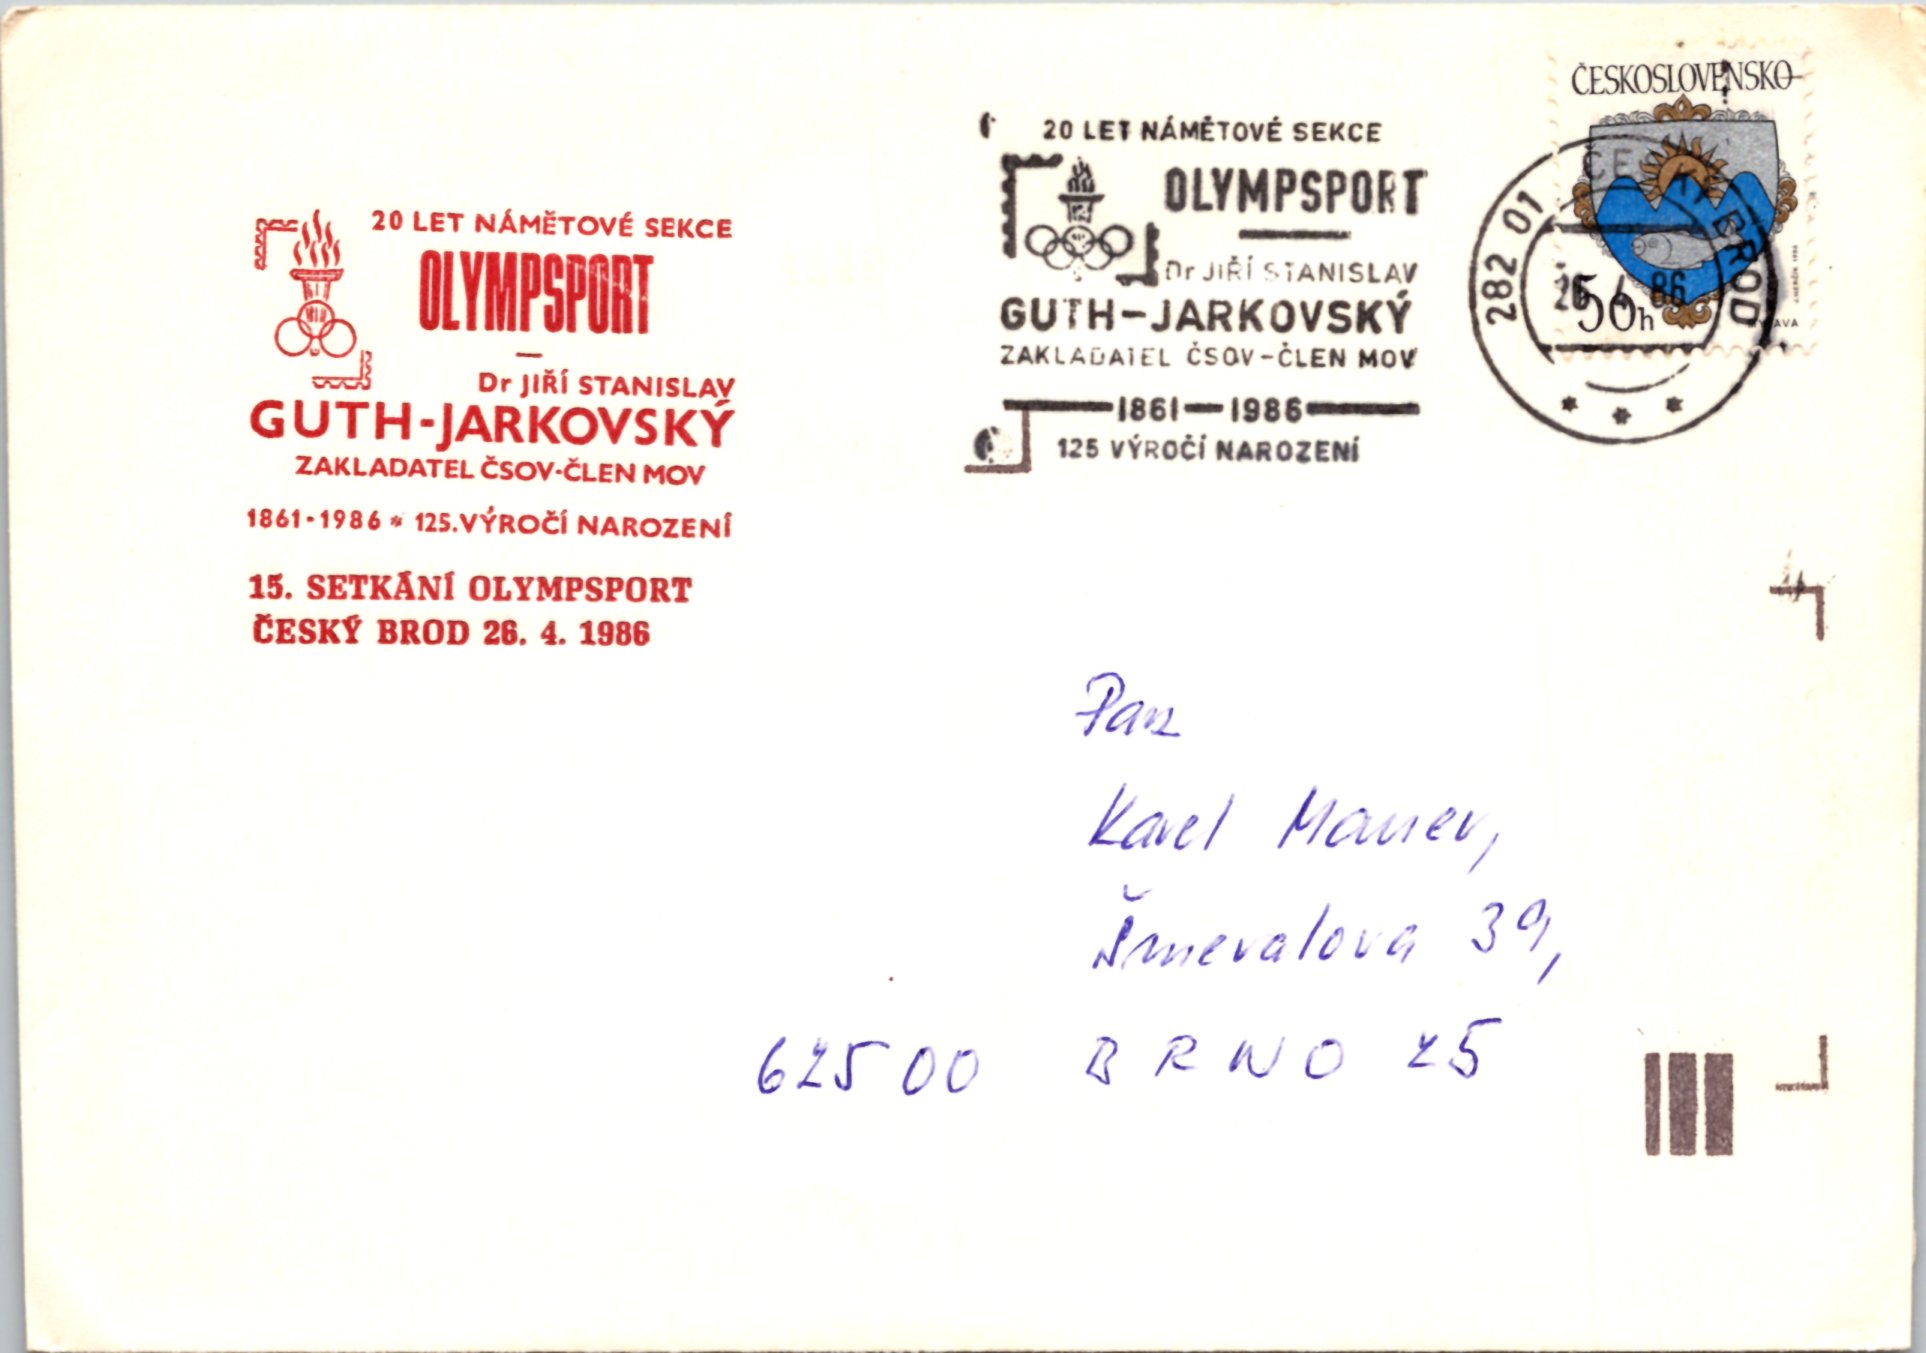 20 LET NÁMĚTOVÉ SEKCE
OLYMPSPORT
Dr JIŘÍ STANISLAV
GUTH-JARKOVSKÝ
ZAKLADATEL ČSOV-ČLEN MOV
1861-1986 * 125.VÝROČÍ NAROZENÍ
15. SETKÁNÍ OLYMPSPORT
ČESKÝ BROD 26. 4. 1986
20 LET NÁMĚTOVÉ SEKCE
OLYMPSPORT
Dr JIŘÍ STANISLAV
GUTH-JARKOVSKÝ
ZAKLADATEL ČSOV-ČLEN MOV
1861-1986
125 VÝROČÍ NAROZENÍ
ČESKOSLOVENSKO
50h
VYTAVA
282 01 ČESKÝ BROD
26.4.86
Pan
Karel Mauer,
Šmeralova 39,
62500 BRNO 25